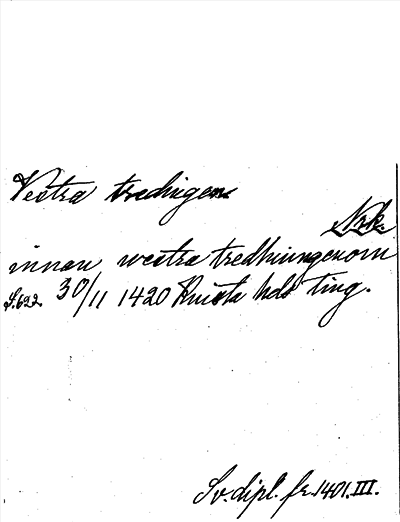 Vestra tredingen
Nrk.
innan westra tredhiungenom
S.692. 30/11 1420 Knista hds ting.
Sv. dipl. fr. 1401. III.